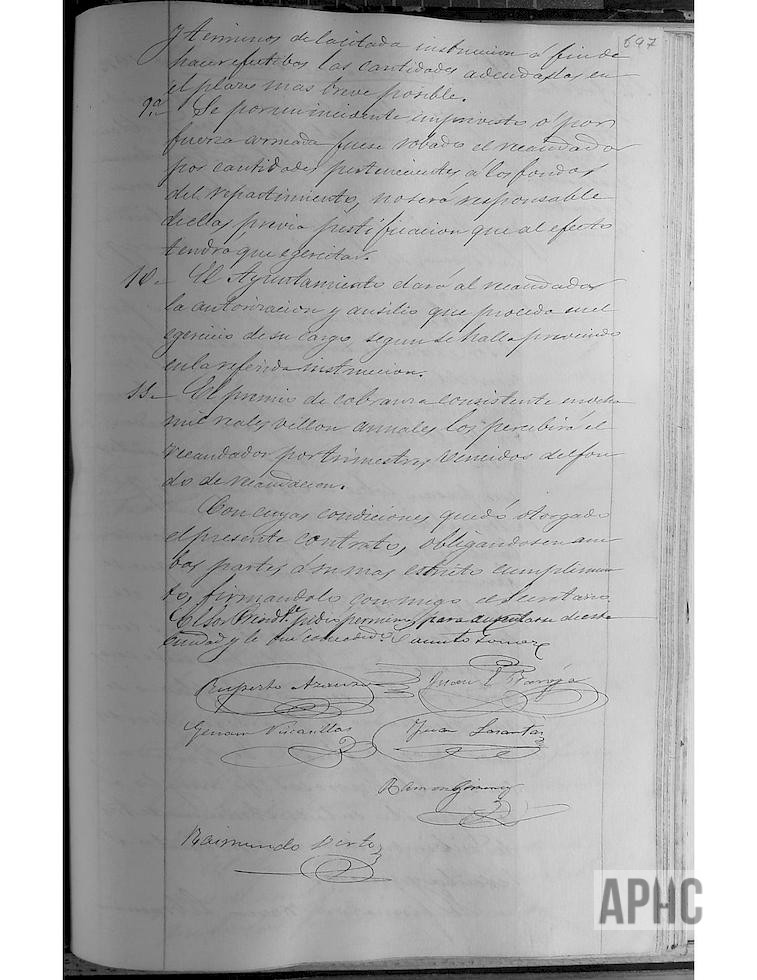 697
y terminos de la citada instruccion á fin de
hacer efectibas las cantidades adeudadas en
el plazo mas breve posible.
9.a Se por un incidente imprevisto ó por
fuerza armada fuese robado el recaudador
por cantidades pertenecientes a los fondos
del repartimiento, no será responsable
de ellas previa justificacion que al efecto
tendra que egercitar.
10.- El Ayuntamiento dará al recaudador
la autorizacion y ausilio que proceda en el
egercicio de su cargo, segun se halla prevenido
en la referida instruccion.
11.- El premio de cobranza consistente en ocho
mil reales vellon anuales los percibirá el
recaudador por trimestres vencidos del fon
do de recaudacion.
Con cuyas condiciones quedó otorgado
el presente contrato, obligandose am
bas partes á su mas estricto cumplimien
to, firmandolo conmigo el secretario
El Sor Presidte pidio permiso para ausentarse de esta
ciudad y le fue concedido
Ruperto Azanza
Juan Baroja
German
Juan
Ramon Gimenez
Raimundo
APHC